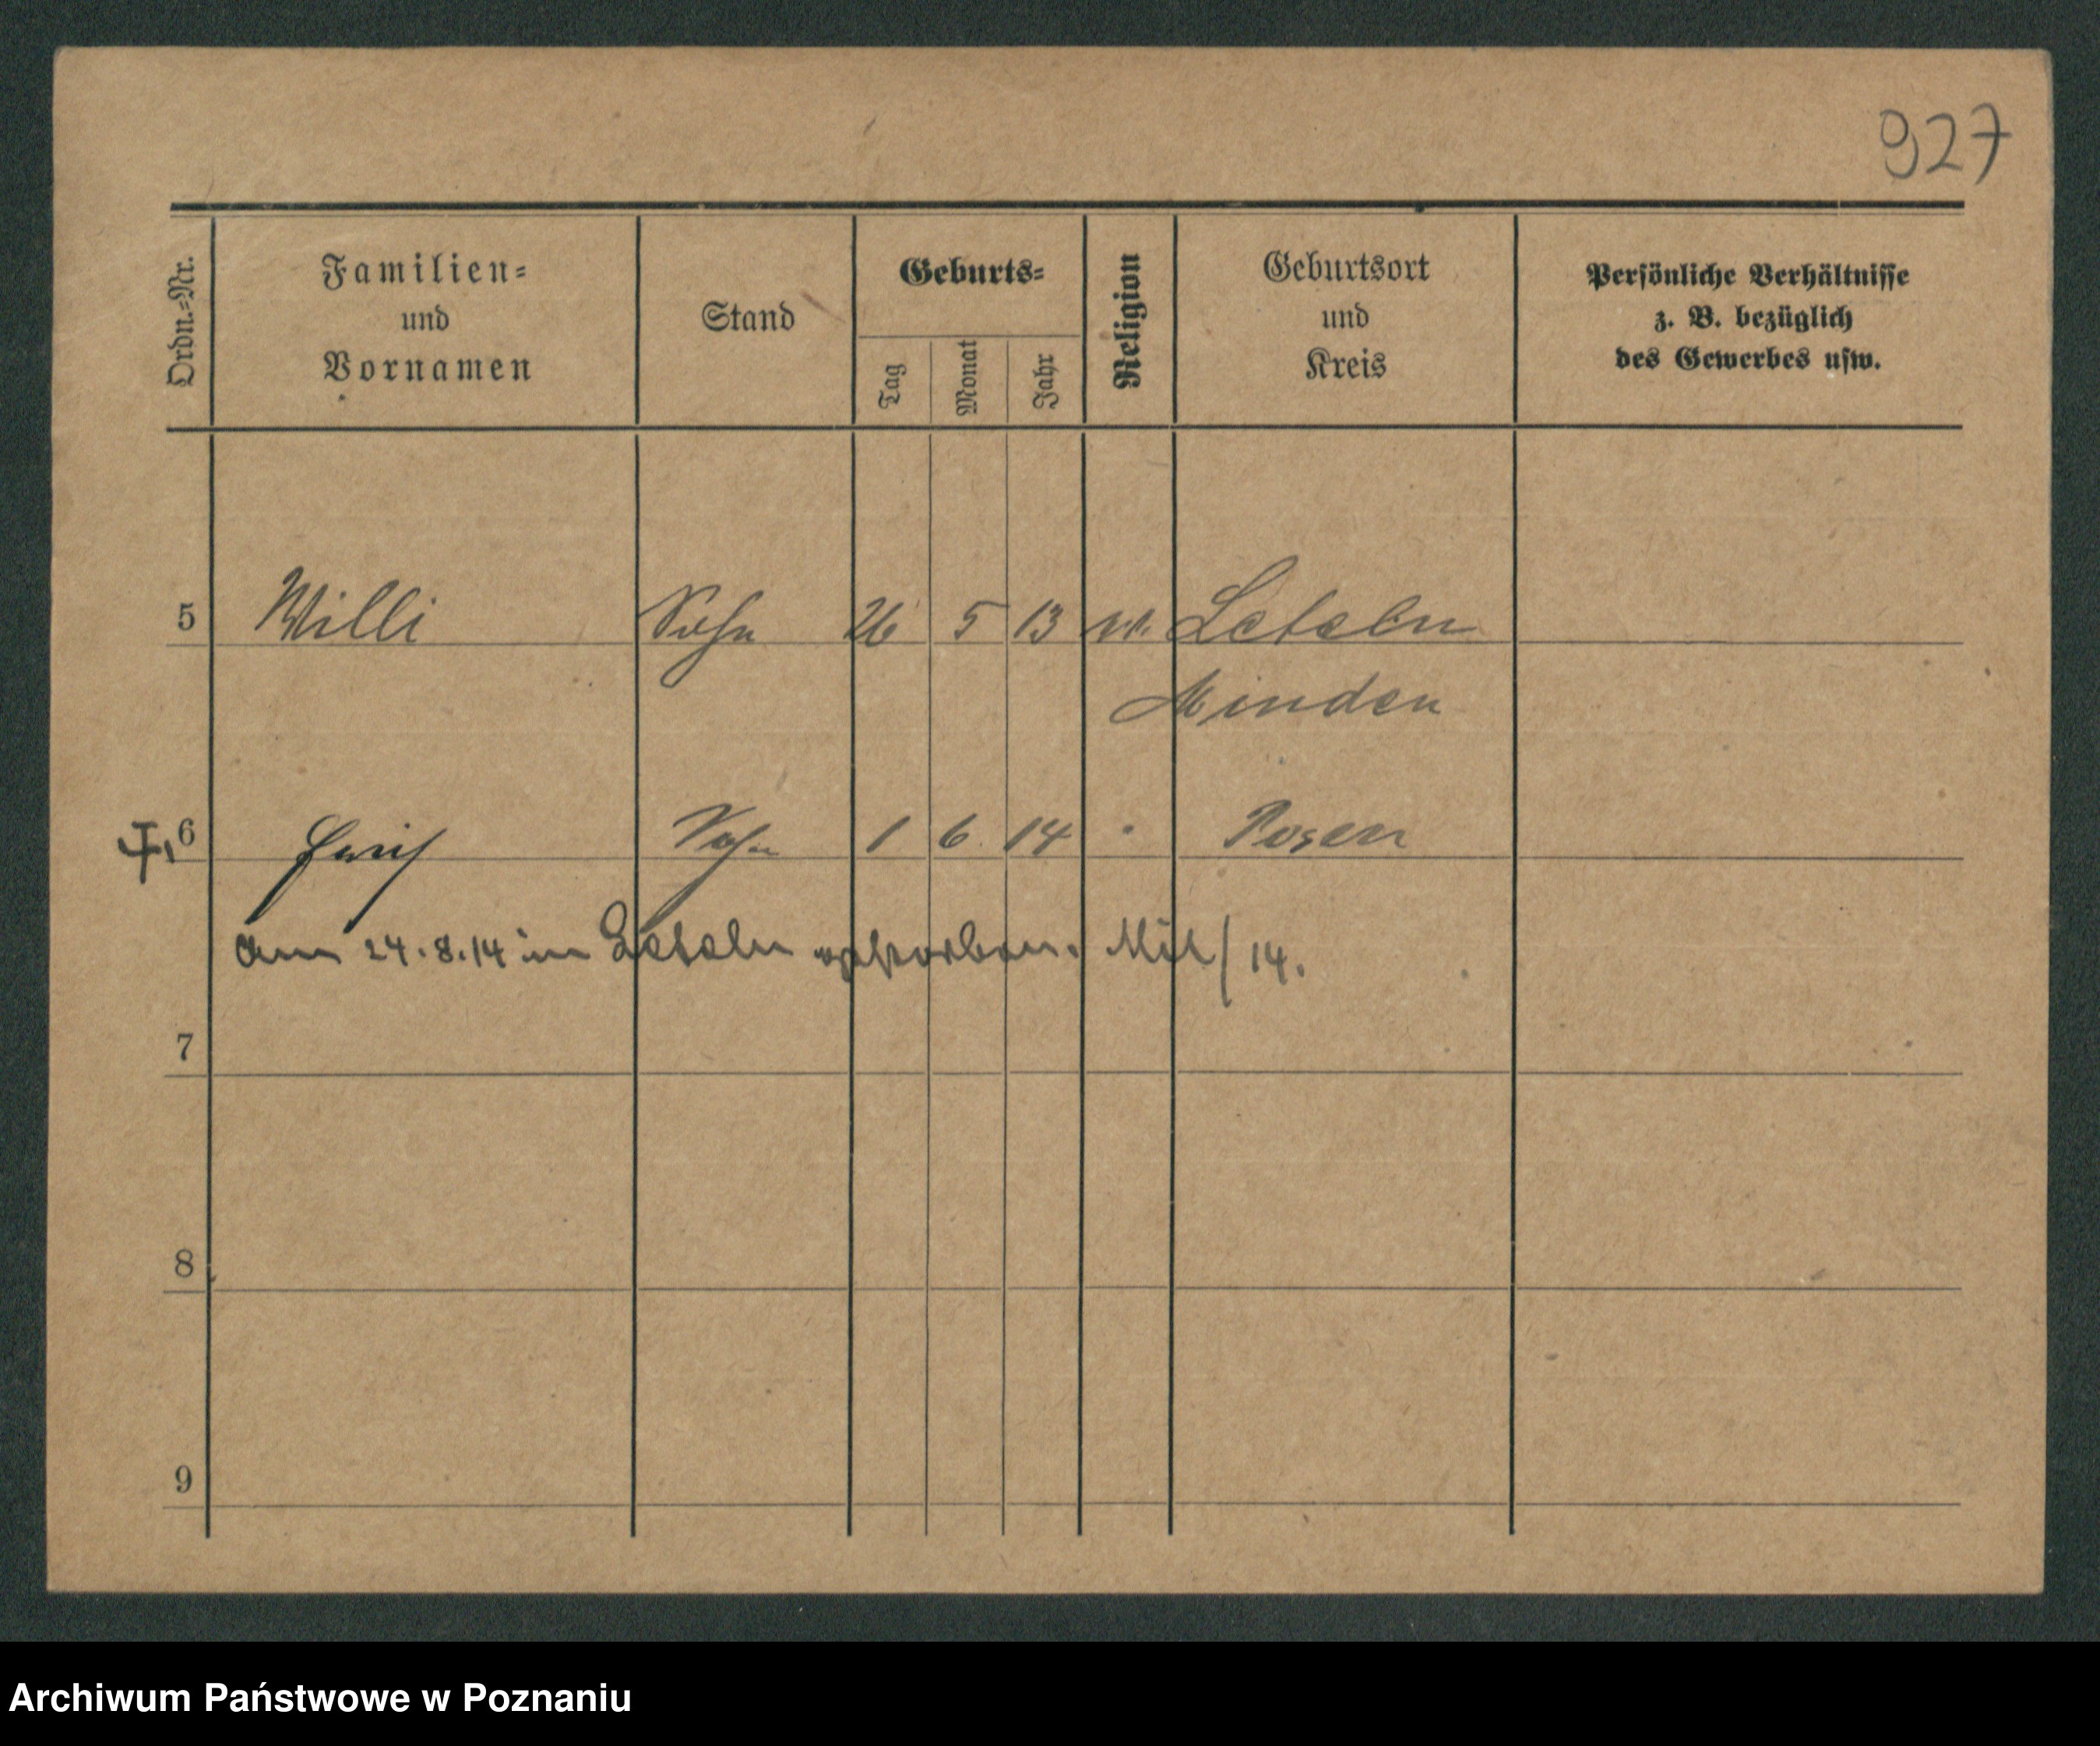 927
Ordn.=Nr.
Familien=
und
Vornamen
Stand
Geburts=
Tag
Monat
Jahr
Religion
Geburtsort
und
Kreis
Persönliche Verhältnisse
z. B. bezüglich
des Gewerbes usw.
5 Willi Sohn 26 5 13 Leteln
Minden
6 Sohn 1 6 14 " Posen
am 24.8.14 in Leteln verstorben. /14.
7
8
9
Archiwum Państwowe w Poznaniu